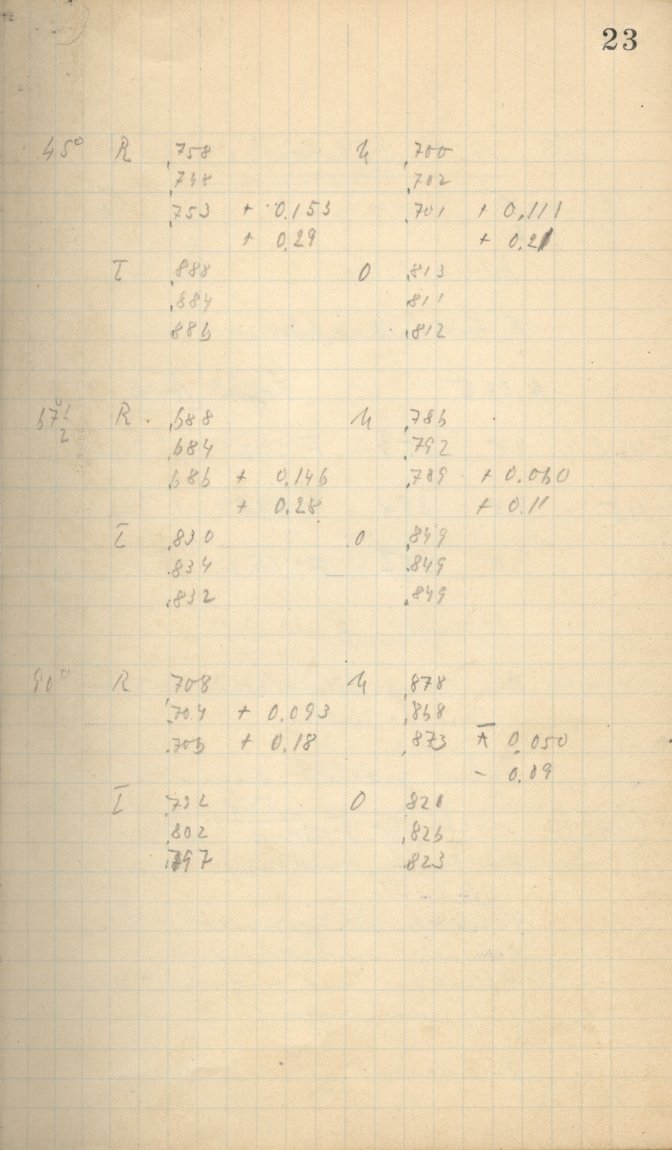 23
45° R .758 U .700
.748 .702
.753 + 0.153 .701 + 0.111
+ 0.29 + 0.21
I .888 O .813
.884 .811
.886 .812
67½° R .688 U .786
.684 .792
.686 + 0.146 .789 + 0.060
+ 0.28 + 0.11
I .830 O .849
.834 .849
.832 .849
90° R .708 U .878
.704 + 0.093 .868
.706 + 0.18 .873 − 0.050
− 0.09
I .792 O .820
.802 .826
.797 .823